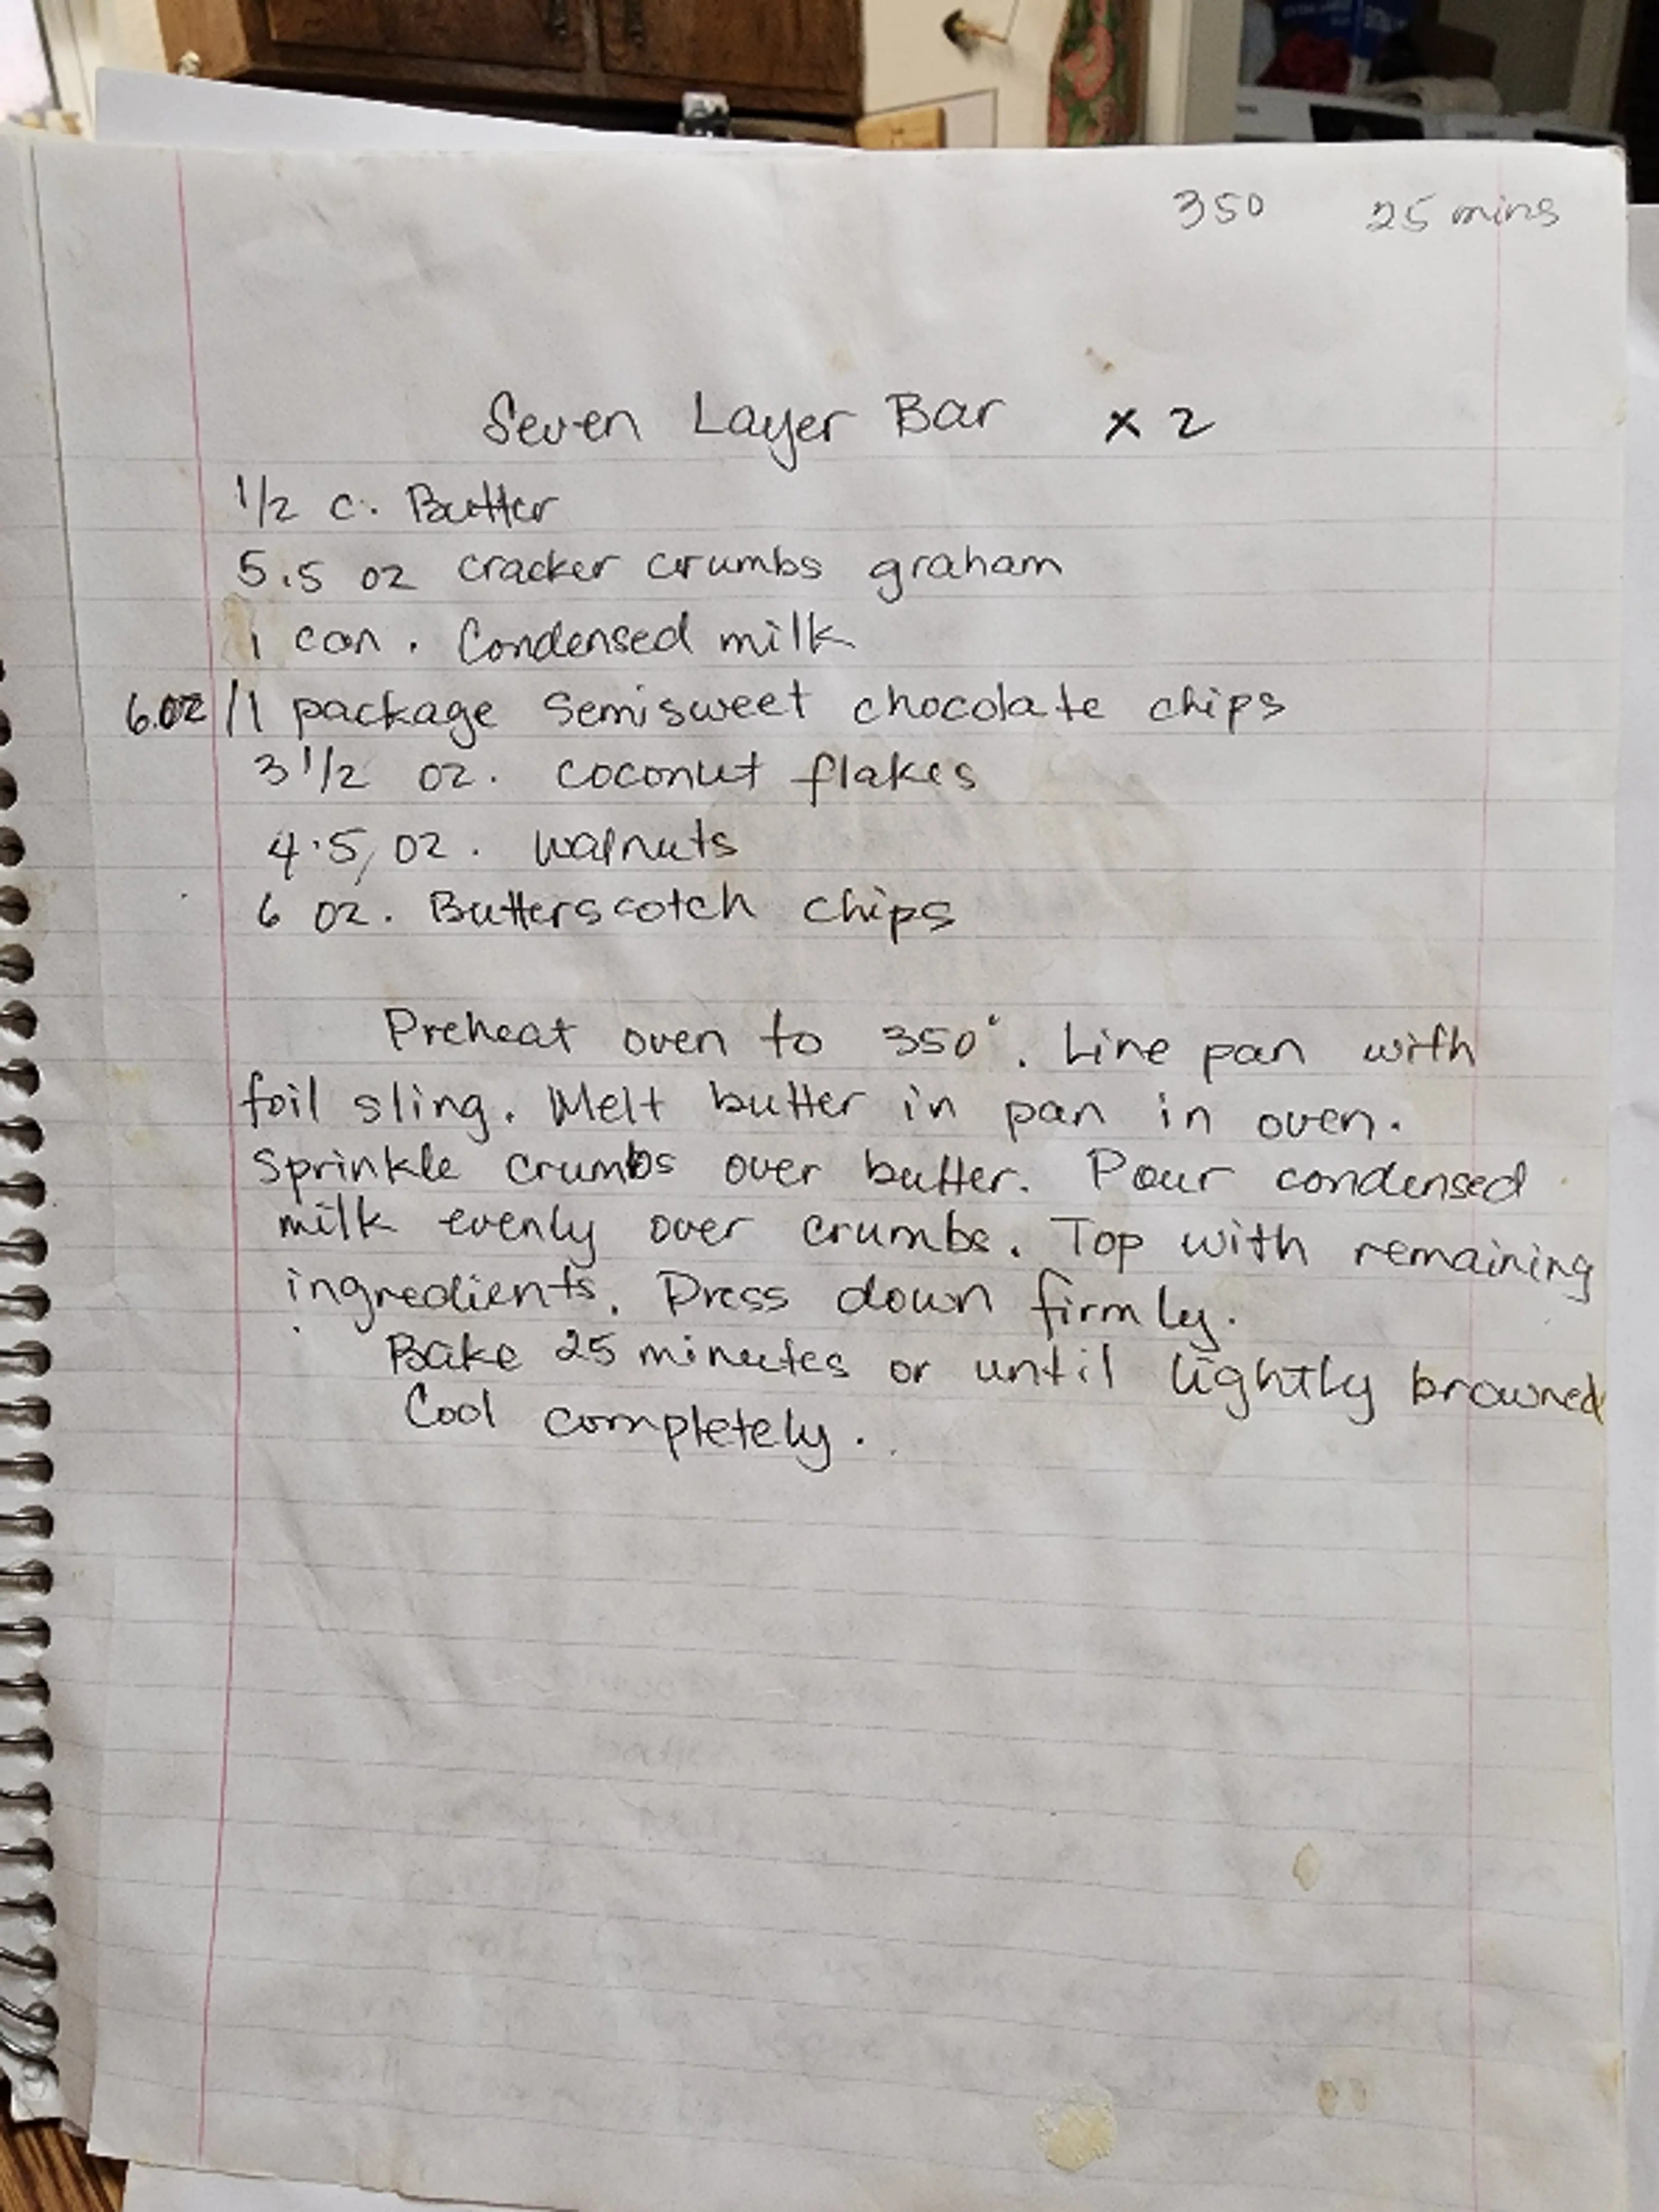 350 25 mins
Seven Layer Bar x 2
1/2 c. Butter
5.5 oz cracker crumbs graham
1 can. Condensed milk
6.oz/1 package Semisweet chocolate chips
3 1/2 oz. coconut flakes
4.5, oz. walnuts
6 oz. Butterscotch chips
Preheat oven to 350°. Line pan with
foil sling. Melt butter in pan in oven.
Sprinkle crumbs over butter. Pour condensed
milk evenly over crumbs. Top with remaining
ingredients. Press down firmly.
Bake 25 minutes or until lightly browned
Cool completely.